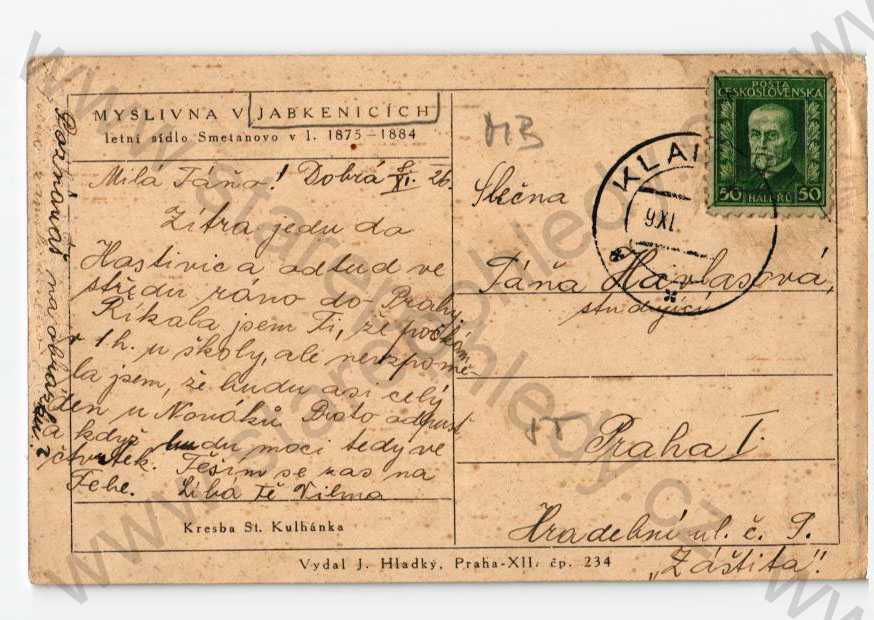 MYSLIVNA V JABKENICÍCH
letní sídlo Smetanovo v l. 1875–1884
Milá Táňo! Dobrá 8/XI. 26.
Zítra jedu do
Hostivic a odtud ve
středu ráno do Prahy.
Říkala jsem Ti, že počkám
v 1 h. u školy, ale nevzpomě-
la jsem, že budu asi celý
den u Nováků Proto odpusť
a když budu moci tedy ve
čtvrtek. Těším se zas na
Tebe. Líbá Tě Vilma
Kresba St. Kulhánka
Vydal J. Hladký, Praha-XII. čp. 234
na obrázku?
MB
POŠTA
ČESKOSLOVENSKÁ
50 HALÉŘŮ 50
KLA
9 XI.
Slečna
Táňa Havlasová,
studující
Praha I.
Hradební ul. č. 9.
„Záštita".
www.starepohledy.cz